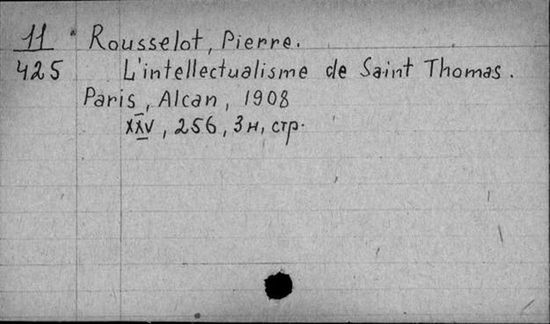 11 Rousselot, Pierre.
425 L'intellectualisme de Saint Thomas.
Paris, Alcan, 1908
XXV, 256, 3н, стр.